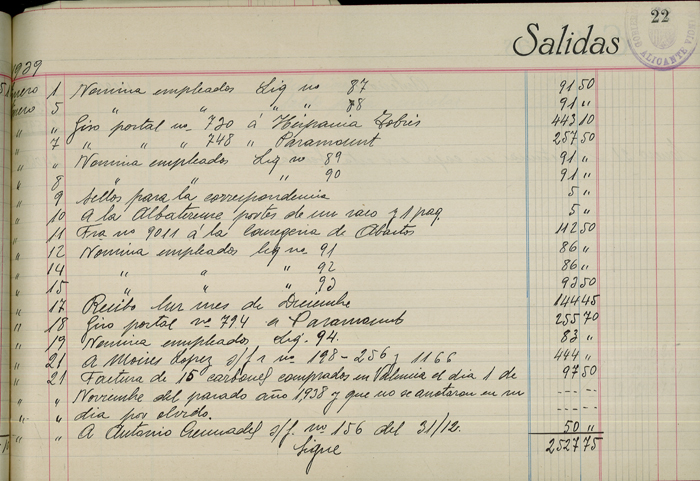 22
Salidas
1939
Enero 1 Nomina empleados Liq no 87 91 50
Enero 5 " " " " 88 91 "
" " Giro postal no 730 á Hispania Tobis 443 10
" 7 " " " 748 " Paramount 257 50
" " Nomina empleados Liq no 89 91 "
" 8 " " " 90 91 "
" 9 Sellos para la correspondencia 5 "
" 10 A la Albaterense portes de un saco y 1 paq. 5 "
" 11 Fra no 9011 á la Consejeria de Abastos 112 50
" 12 Nomina empleados liq no 91 86 "
" 14 " " " 92 86 "
" 15 " " " 93 93 50
" 17 Recibo luz mes de Diciembre 144 45
" 18 Giro postal no 794 a Paramount 255 70
" 19 Nomina empleados liq. 94. 83 "
" 21 A Moises Lopez s/f r no 198-256 y 1166 444 "
" 21 Factura de 15 carbones comprados en Valencia el dia 1 de 97 50
" " Noviembre del pasado año 1938 y que no se anotaron en su - - - -
" " dia por olvido. - - - -
" " A Antonio s/f. no 156 del 31/12. 50 "
Sigue 2527 75